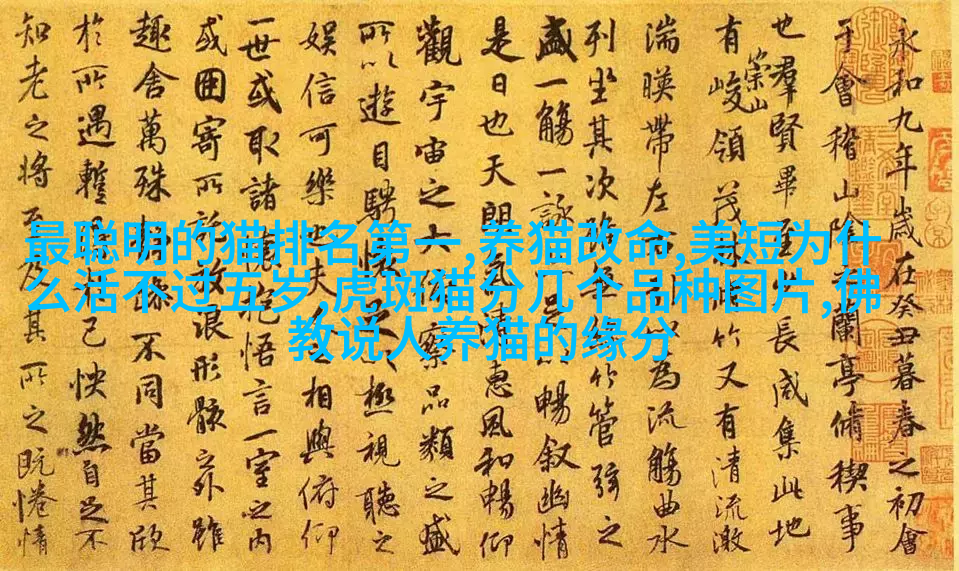 最聪明的猫排名第一,养猫改命,美短为什
么活不过五岁,虎斑猫分几个品种图片,佛
教说人养猫的缘分
永和九年歲在癸丑暮春之初會
于會稽山陰蘭亭脩稧事
也羣賢畢至少長咸集此地
有崇山峻領茂林竹又有清流激
湍暎帶左為流觴曲水
列坐其次竹管弦之
盛一觴一詠暢叙幽情
是日也天朗氣清惠風和暢仰
觀宇宙之大察品類之盛
所以遊目騁懷足以極視聽之
娛信可樂也夫人之相與俯仰
一世或取諸懷抱悟言一室之內
或因寄所託放浪形骸之外雖
趣舍萬殊不同當其欣
於所遇蹔己怏然自足不
知老之將至及其所之既惓情